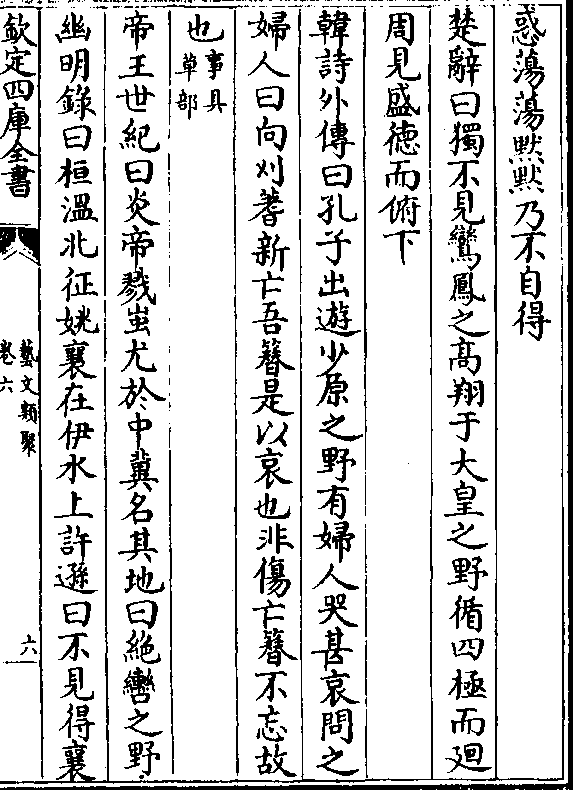 惑蕩蕩黙黙乃不自得
楚辭曰獨不見鸞鳳之髙翔于大皇之野循四極而廻
周見盛徳而俯下
韓詩外傳曰孔子出遊少原之野有婦人哭甚哀問之
婦人曰向刈蓍新亡吾簪是以哀也非傷亡簪不忘故
也事具草部
帝王世紀曰炎帝戮蚩尤於中冀名其地曰絶轡之野
幽明録曰桓溫北征姚襄在伊水上許遜曰不見得襄
欽定四庫全書
藝文類聚
卷六
六